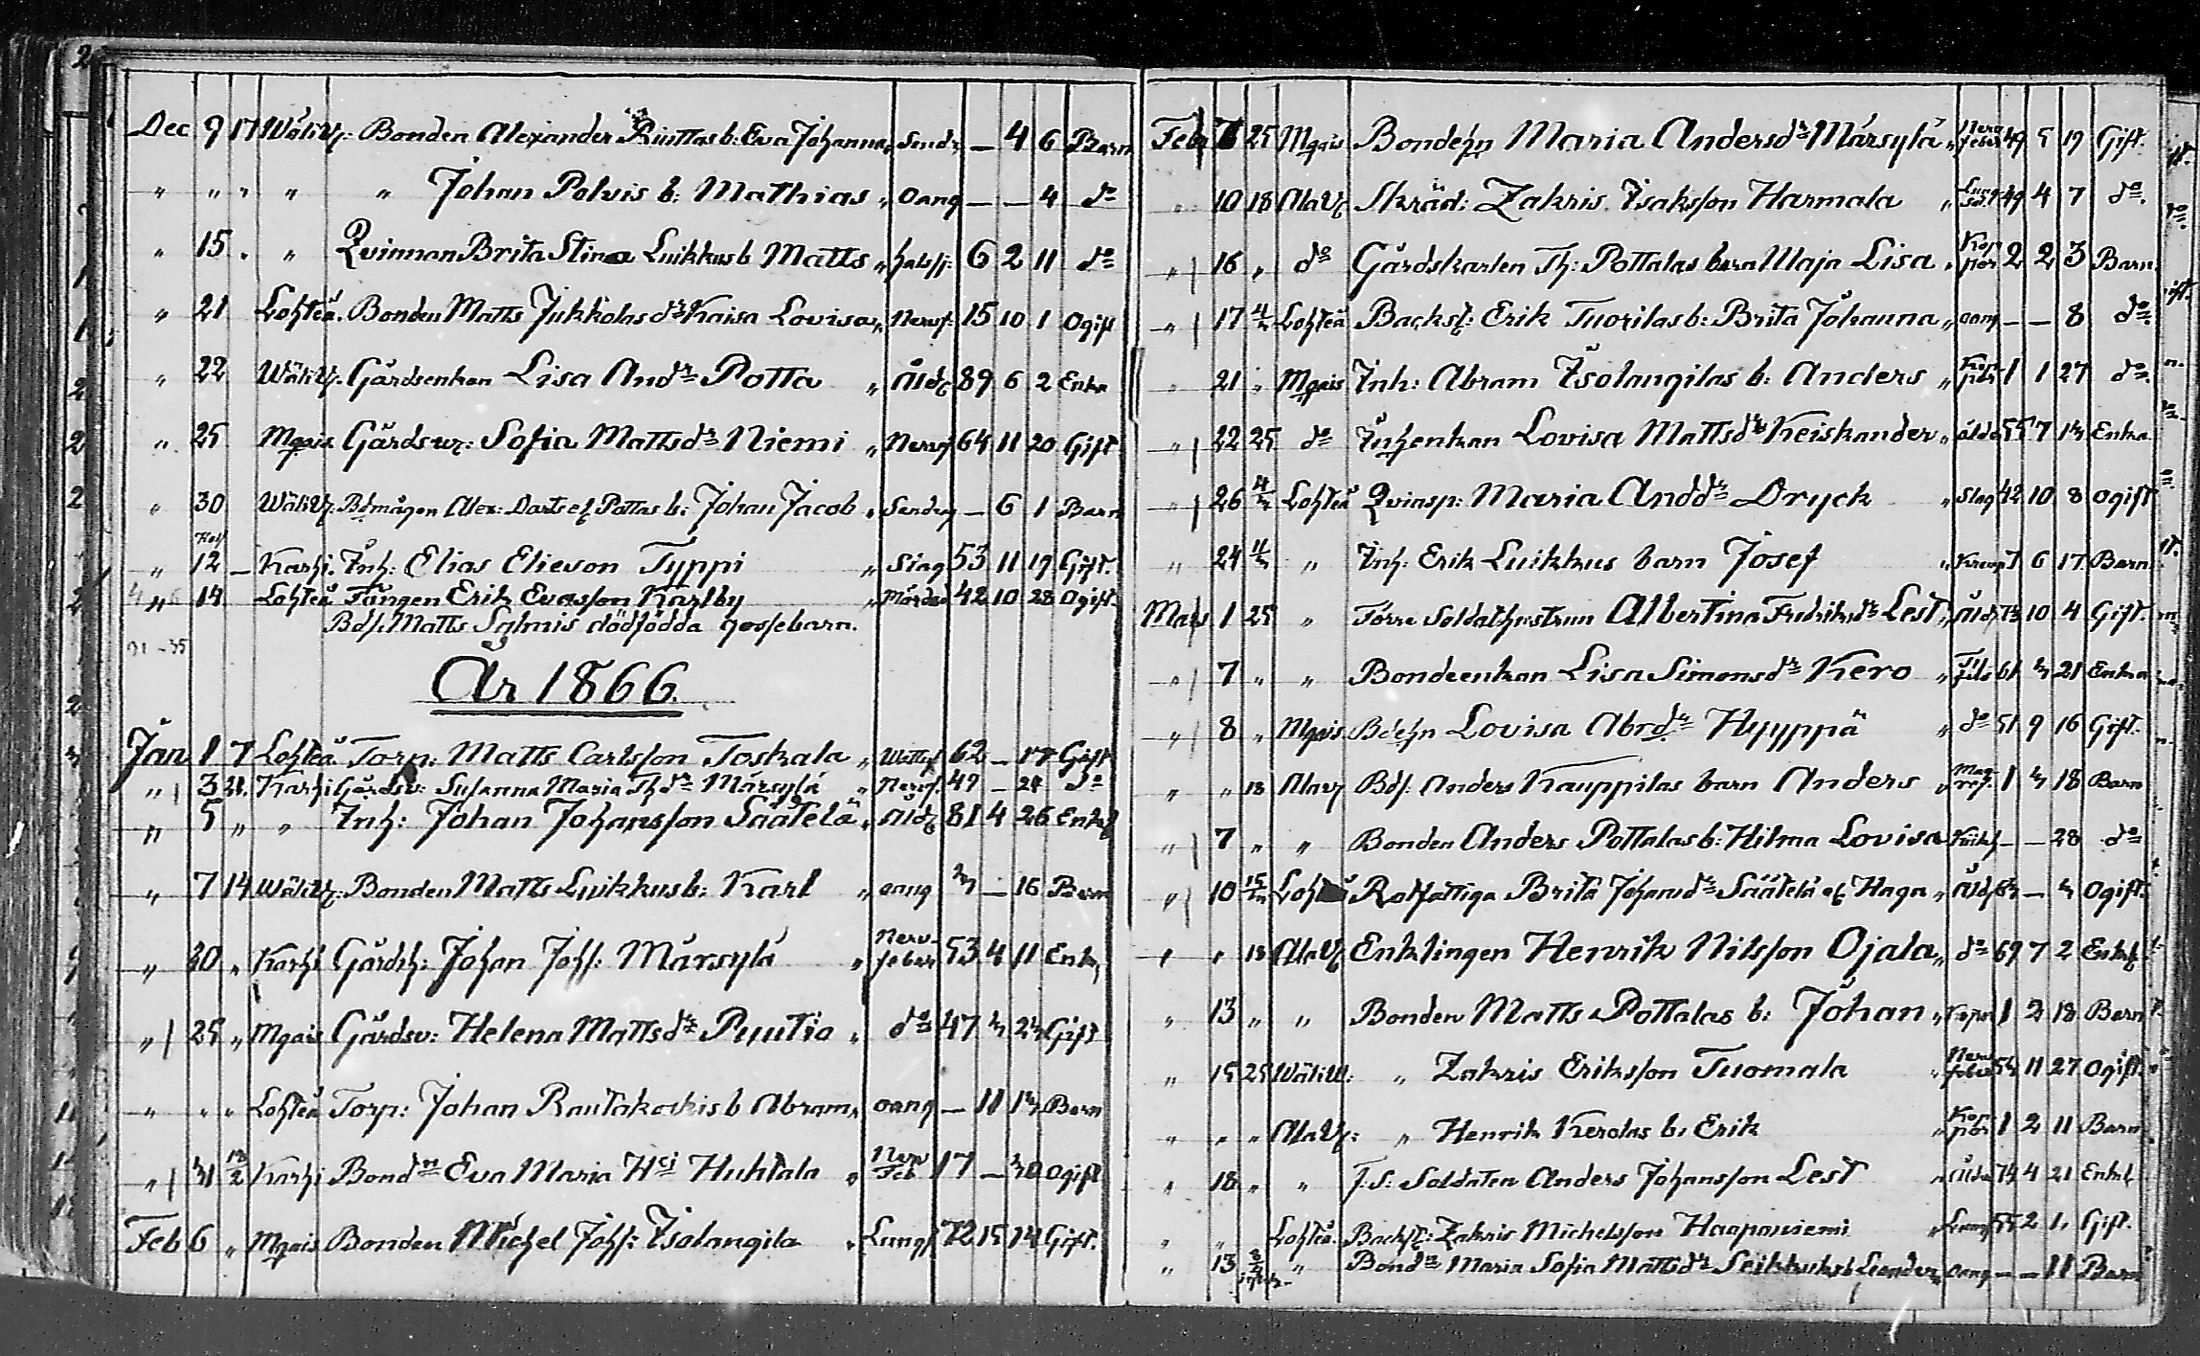 Dec 9 17 Wäliv: Bonden Alexander Riuttas b: Eva Johanna " Sendr — 4 6 Barn
" " " " " Johan Polvis b: Mathias " oang — — 4 do
" 15 " " Qvinnan Brita Stina Luikkus b Matts " halssj: 6 2 11 do
" 21 Lohteå. Bonden Matts Jukkolas dr Kaisa Lovisa " Nervf: 15 10 1 Ogift
" 22 Wäliv. Gårdsenkan Lisa Anddr Potta " Åldg 89 6 2 Enka
" 25 Mgais Gårdsw: Sofia Mattsdr Niemi " Nervf 64 11 20 Gift
" 30 Wäliv. Bdmågen Alex: Pottas b: Johan Jacob " Sendrag — 6 1 Barn
" 12 — Karhi. Inh: Elias Elieson Typpi " Slag 53 11 19 Gift.
" 14 Lohteå Fången Erik Evasson Karlby " Mördad 42 10 28 Ogift
Bds. Matts Salmis dödfödda gossebarn.
År 1866.
Jan 1 7 Lohteå Torp: Matts Carlsson Toskala " Wattus 62 — 17 Gift
" 3 21. Karhi Gårdsv: Susanna Maria Thdr Märsylä " Nervf. 49 — 24 do
" 5 " " Inh: Johan Johansson Säätelä " Åldg 81 4 26 Enkl
" 7 14 Wäliv. Bonden Matts Luikkus b: Karl " oang 2/7 — 16 Barn
" 20 " Karhi Gårdsh: Johan Johs: Märsylä " Nervfeber 53 4 11 Enkl
" 25 " Mgais Gårdsv: Helena Mattsdr Puutio " do 47 Gift
" " " Lohteå Torp: Johan Rautakoskis b Abram " oang — 11 Barn
" 31 Karhi Bonddr Eva Maria Hci Huhtala " Nerv Feb 17 — 30 Ogift
Feb 6 " Mgais Bonden Michel Johs: Isolangila " Lungs 72 15 14 Gift.
Feb 25 Mgais Bondehn Maria Andersdr Märsylä " Nervfeber 49 5 19 Gift.
" 10 18 Alav Skräd: Zakris Isaksson Harmala " Lungsot 49 4 7 do
" 16 " do Gårdskarlen Th: Pottalas barn Maja Lisa " Koppor 2 2 3 Barn
" 17 Lohteå Backst: Erik Tuorilas b: Brita Johanna " oang — — 8 do
" 21 " Mgais Inh: Abram Isolangilas b: Anders " Koppor 1 1 27 do
" 22 25 do Inhenkan Lovisa Mattsdr Keiskander " åldr 55 7 Enka
" 26 Lohteå Qvinsp: Maria Anddr Dryck " Slag 42 10 8 ogift
" 24 " Inh. Erik Luikkus barn Josef " Kramp 7 6 17 Barn
Mars 1 25 " Förre Soldathustrun Albertina Fredriksdr Lest " Åld 10 4 Gift.
" 7 " " Bondeenkan Lisa Simonsdr Kero " 61 21 Enka
" 8 " Mgais Bdehn Lovisa Abrdr Hyyppä " do 51 9 16 Gift.
" " 18 Alav Bds. Anders Kauppilas barn Anders " 1 18 Barn
" 7 " " Bonden Anders Pottalas b: Hilma Lovisa Kikh — — 28 do
" 10 Lohteå Rotfattiga Brita Johansdr Säätelä el. Haga " åld — Ogift.
" " 18 Alav Enklingen Henrik Nilsson Ojala " do 69 7 2 Enkl
" 13 " " Bonden Matts Pottalas b: Johan " Koppr 1 2 18 Barn
" 15 25 Wäliv: " Zakris Eriksson Tuomala " Nervfeber 11 27 Ogift
" " " Alav: " Henrik Kerolas b: Erik " Koppor 1 2 11 Barn
" 18 " " F.S: Soldaten Anders Johansson Lest " Åldr 74 4 21 Enkl
" " Lohteå. Backst: Zakris Michelsson Haapaniemi " Lungs 55 2 1. Gift.
" 13 " Bonddr Maria Sofia Mattsdr Seikkulas b Leander oang — — 11 Barn